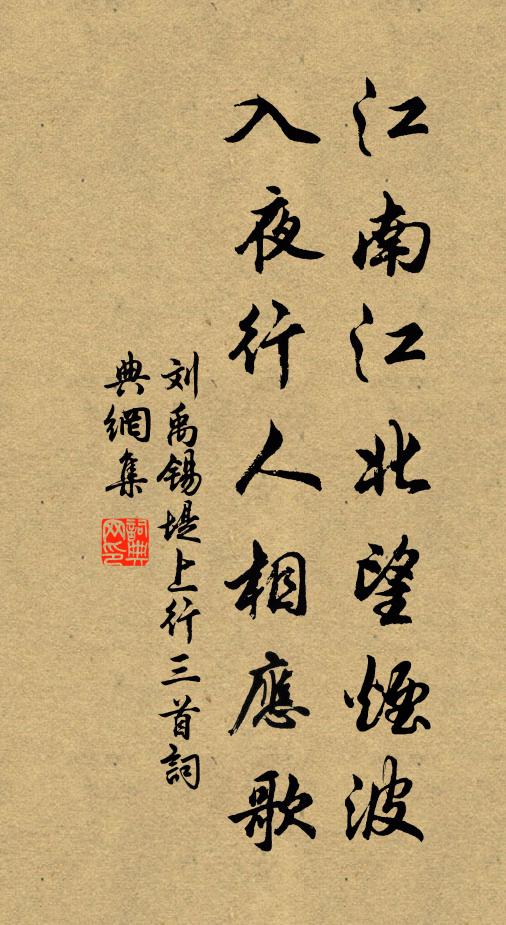 江南江北望煙波
入夜行人相應歌
刘禹锡堤上行三首詞
典網集
詞典网印